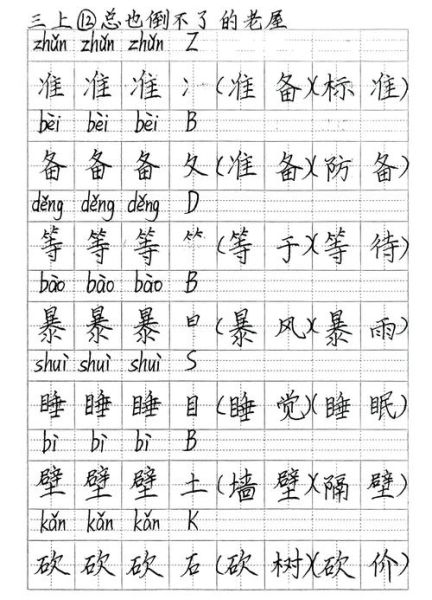 三上⑫总也倒不了的老屋
zhǔn zhǔn zhǔn Z
准 准 准 冫(准 备)(标 准)
bèi bèi bèi B
备 备 备 夂(准 备)(防 备)
děng děng děng D
等 等 等 ⺮(等 于)(等 待)
bào bào bào B
暴 暴 暴 日(暴 风)(暴 雨)
shuì shuì shuì S
睡 睡 睡 目(睡 觉)(睡 眠)
bì bì bì B
壁 壁 壁 土(墙 壁)(隔 壁)
kǎn kǎn kǎn K
砍 砍 砍 石(砍 树)(砍 价)